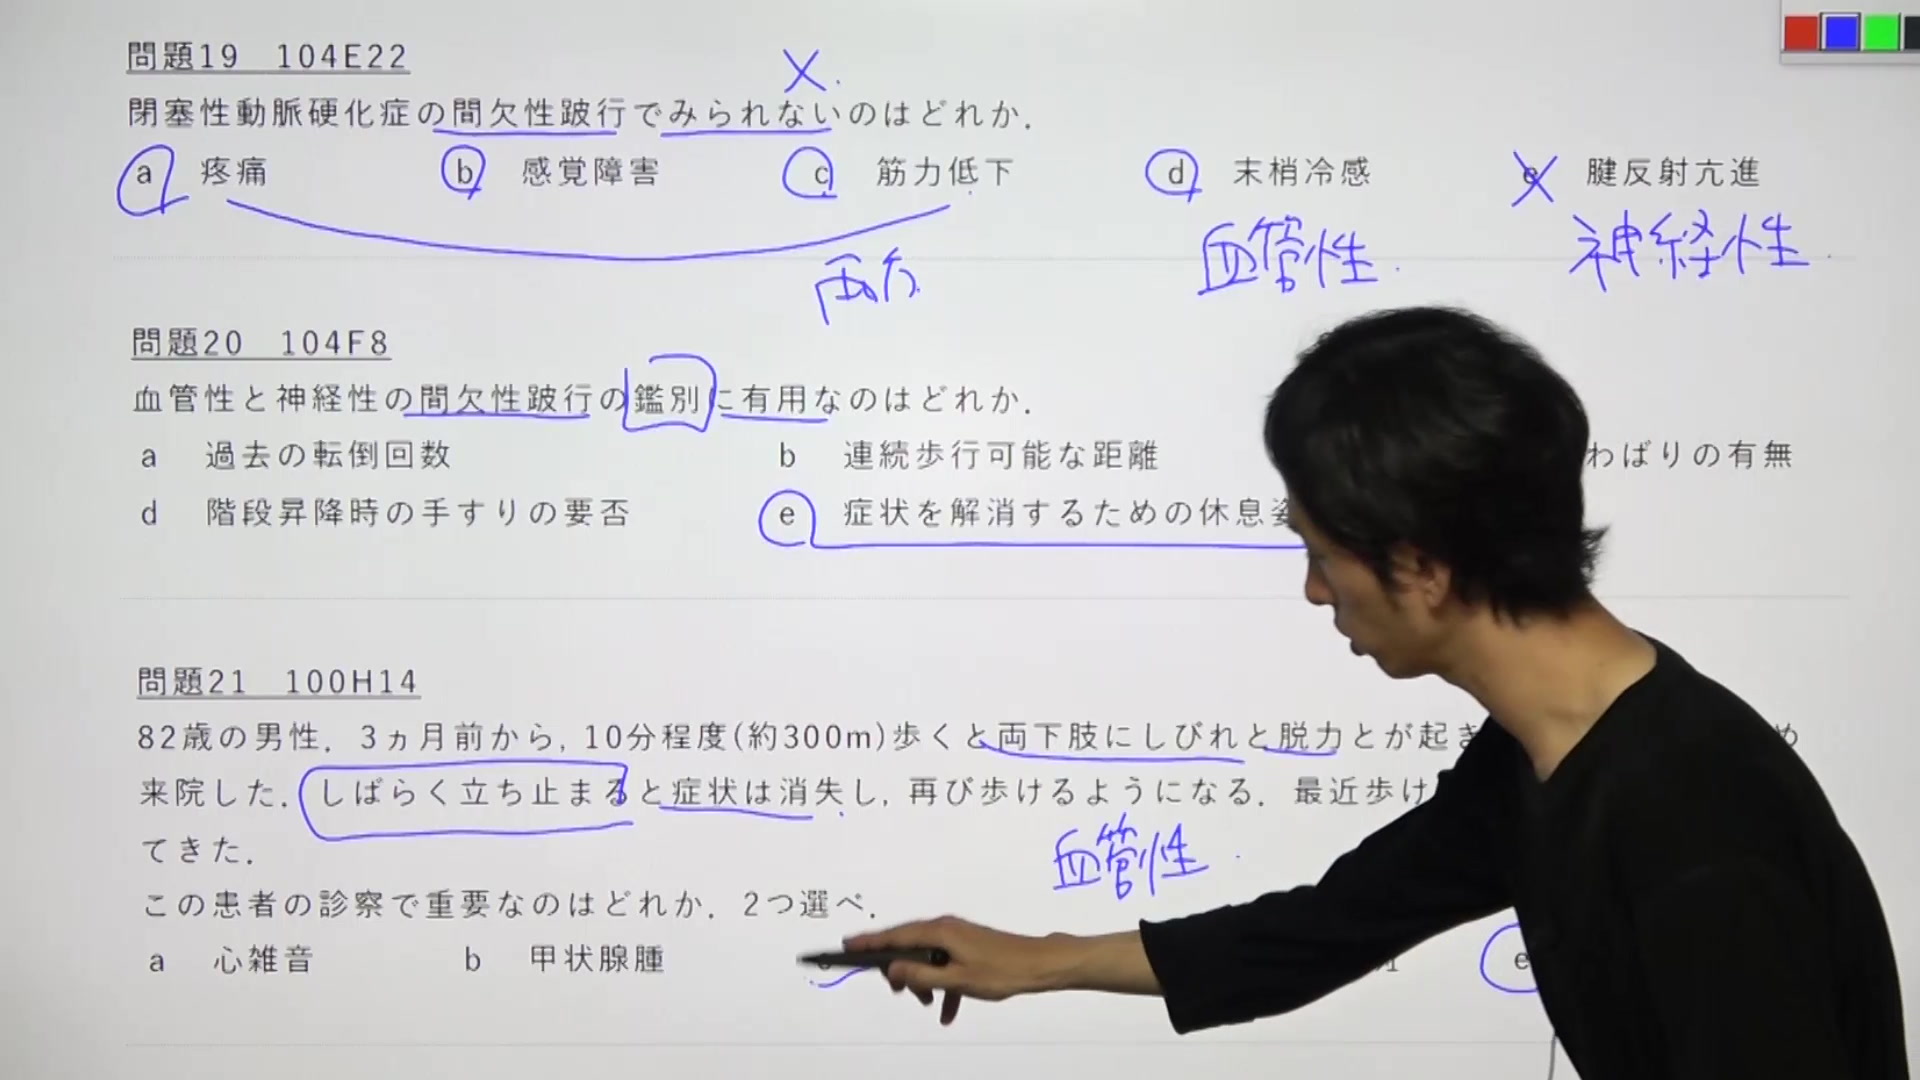 問題19 104E22
×
閉塞性動脈硬化症の間欠性跛行でみられないのはどれか.
a 疼痛 b 感覚障害 c 筋力低下 d 末梢冷感 e 腱反射亢進
両方 血管性 神経性
問題20 104F8
血管性と神経性の間欠性跛行の鑑別に有用なのはどれか.
a 過去の転倒回数 b 連続歩行可能な距離 わばりの有無
d 階段昇降時の手すりの要否 e 症状を解消するための休息姿
問題21 100H14
82歳の男性. 3ヵ月前から, 10分程度(約300m)歩くと両下肢にしびれと脱力とが起き め
来院した. しばらく立ち止まると症状は消失し, 再び歩けるようになる. 最近歩け
てきた.
血管性
この患者の診察で重要なのはどれか. 2つ選べ.
a 心雑音 b 甲状腺腫 e